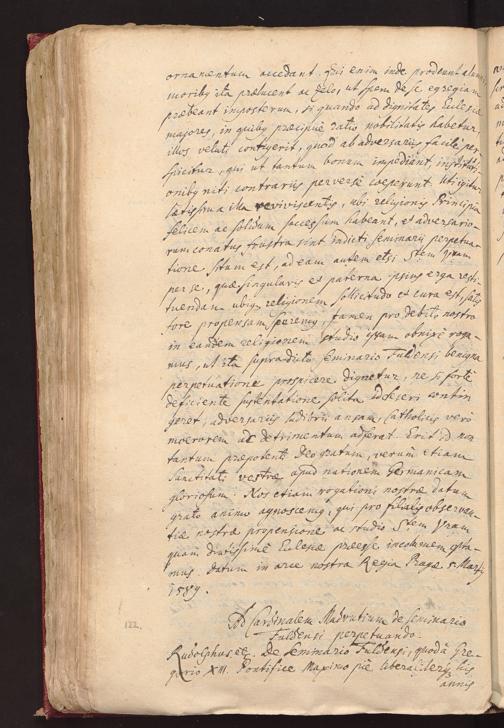 ornamentum accedant. Qui enim inde prodeunt alumni
moribus ita prælucent ac zelo, ut spem de se egregiam
præbeant imposterum, si quando ad dignitates Ecclesiæ
majores, in quibus præcipue ratio nobilitatis habetur,
illos vehi contigerit, quod ab adversariis facile per-
spicitur, qui ut tantum bonum impediant, institut-
ionibus niti contrariis perverse coeperunt. Ut igitur
lætissima illa reviviscentis, ubi religionis Principia
felicem ac solidum successum habeant, et adversario-
rum conatus frustra sint, in dicti seminarii perpetua-
tione situm est, ad eam autem etsi Stem Vram
per se, quæ singularis et paterna ipsius erga resti-
tuendam ubique religionem sollicitudo et cura est, satis
fore propensam speremus, tamen pro debito nostro
in eandem religionem studio ipsam obnixe roga-
mus, ut ita supradicto seminario Fuldensi benigna
perpetuatione prospicere dignetur, ne si forte
deficiente sustentatione solita deseri contin
geret, adversariis ludibrii ansam, Catholicis vero
moerorem ac detrimentum adferat. Erit id non
tantum præpotenti Deo gratum, verum etiam
Sanctitati vestræ apud nationem Germanicam
gloriosum: Nos etiam rogationi nostræ datum
grato animo agnoscemus, qui pro filialis observan-
tiæ nostræ propensione ac studio Stem Vram
quam diutissime Ecclesiæ præesse incolumem opta-
mus. Datum in arce nostra Regia Pragæ 5 Martij
1589.
122.
Ad Cardinalem Madrutium de seminario
Fuldensi perpetuando.
Rudolphus etc. De seminario Fuldensi, quod a Gre-
gorio XIII. Pontifice Maximo piè liberaliterque his
annis